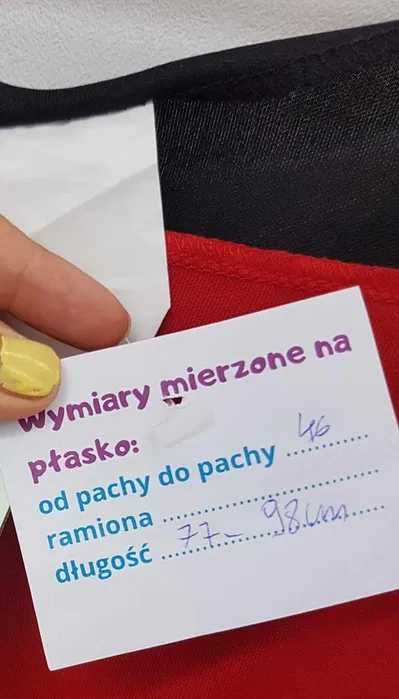 Wymiary mierzone na
płasko:
od pachy do pachy ...46...
ramiona ..............................
długość ...77 - 98 cm...